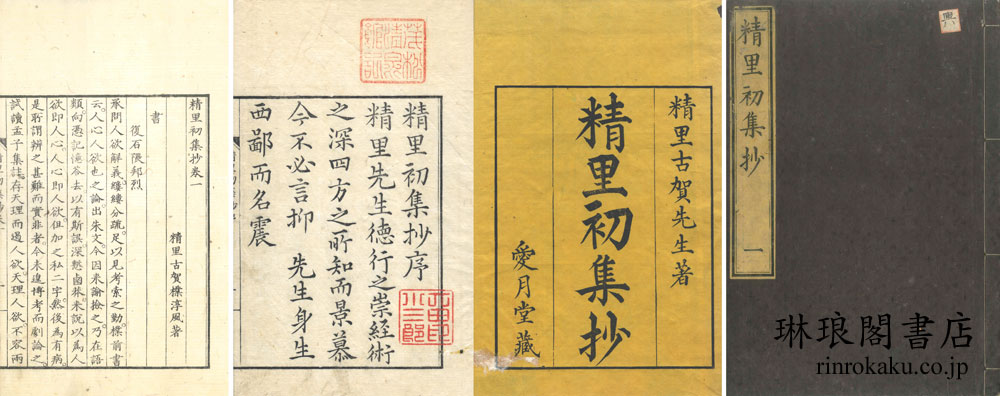 精里初集抄 一
琳琅閣書店
rinrokaku.co.jp
精里古賀先生著
精里初集抄
愛月堂藏
精里初集抄序
精里先生德行之崇經術
之深四方之所知而景慕
今不必言抑 先生身生
西鄙而名震
精里初集抄卷一
精里古賀樸淳風著
書
復石 邦烈
承問人欲解義縷縷分疏足以見考索之勤樸前書
云人心人欲也之論出朱文今因來論撿之乃在語
類向憑記憶答去以有斯誤深愁鹵莽來說以為人
欲即人心人心即人欲但加之私二字然後為有病
是所謂辨之甚難而實非者今未遑博考而劇論之
試讀孟子集註存天理而遏人欲天理人欲不容兩